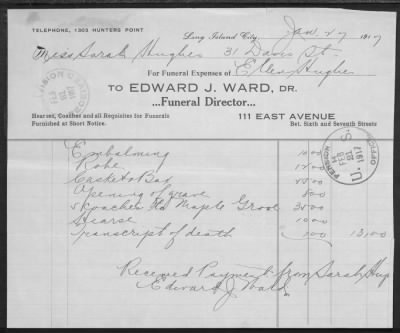 TELEPHONE, 1303 HUNTERS POINT
Long Island City, Jan 27 1917
Miss Sarah Hughes 31 Davis St.
For Funeral Expenses of Ellen Hughes
TO EDWARD J. WARD, DR.
...Funeral Director...
Hearses, Coaches and all Requisites for Funerals
Furnished at Short Notice.
111 EAST AVENUE
Bet. Sixth and Seventh Streets
Embalming 10 00
Robe 12 00
Casket & Box
Opening of grave 8 00
5 Coaches Maple Grove 35 00
Hearse 10 00
Transcript of death 1 00
PENSION OFFICE
U. S.
FEB
1917
Received Payment from Sarah Hug
Edward J Ward